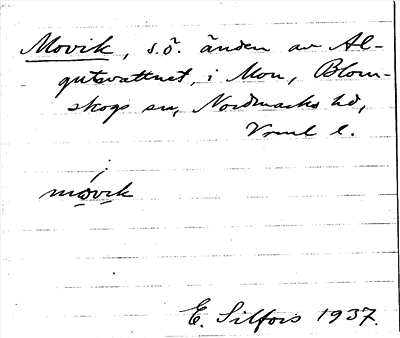 Movik, s.ö. änden av Al-
gutsvattnet, i Mon, Blom-
skogs sn, Nordmarks hd,
Vrml l.
móvik
E. Silfors 1937.